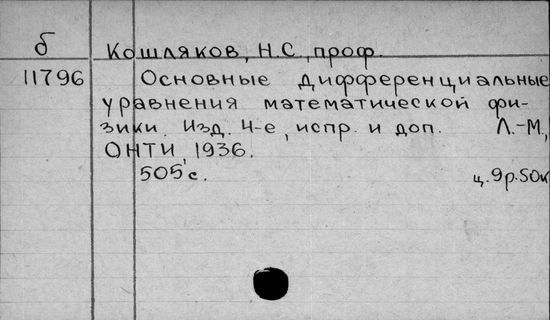 б
Кошляков, Н.С., проф.
11796
Основные дифференциальные
уравнения математической фи-
зики. Изд. 4-е, испр. и доп. Л.-М.,
ОНТИ, 1936.
505 с. ц. 9р.50к